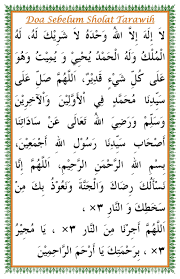 Doa Sebelum Sholat Tarawih
لَا إِلَهَ إِلَّا اللهُ وَحْدَهُ لَا شَرِيْكَ لَهُ، لَهُ
الْمُلْكُ وَلَهُ الْحَمْدُ يُحْيِيْ وَ يُمِيْتُ وَهُوَ
عَلَى كُلِّ شَيْءٍ قَدِيْرٌ، اَللَّهُمَّ صَلِّ عَلَى
سَيِّدِنَا مُحَمَّدٍ فِي الْأَوَّلِيْنَ وَالْآخِرِيْنَ
وَسَلِّمْ وَرَضِيَ اللهُ تَعَالَى عَنْ سَادَاتِنَا
أَصْحَابِ سَيِّدِنَا رَسُوْلِ اللهِ أَجْمَعِيْنَ،
بِسْمِ اللهِ الرَّحْمَنِ الرَّحِيْمِ، اَللَّهُمَّ إِنَّا
نَسْأَلُكَ رِضَاكَ وَالْجَنَّةَ وَنَعُوْذُ بِكَ مِنْ
سَخَطِكَ وَ النَّارِ ×٣
اَللَّهُمَّ أَجِرْنَا مِنَ النَّارِ ×٣ ، يَا مُجِيْرُ
×٣ ، بِرَحْمَتِكَ يَا أَرْحَمَ الرَّاحِمِيْنَ